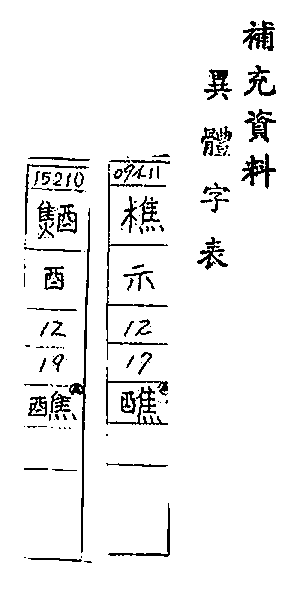 補充資料
異體字表
示
12
17
醮
15210
酉
12
19
醮